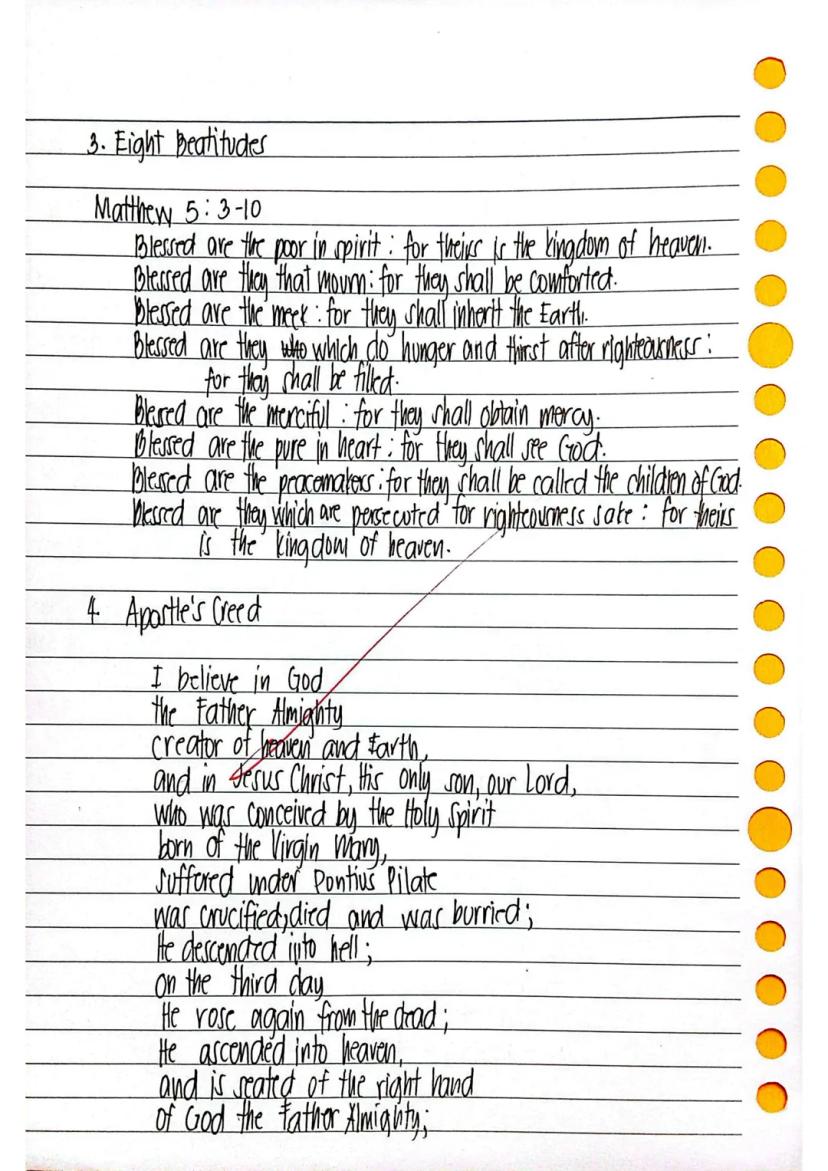 3. Eight Beatitudes
Matthew 5:3-10
Blessed are the poor in spirit : for theirs is the kingdom of heaven.
Blessed are they that mourn : for they shall be comforted.
Blessed are the meek : for they shall inherit the Earth.
Blessed are they who which do hunger and thirst after righteousness :
for they shall be filled.
Blessed are the merciful : for they shall obtain mercy.
Blessed are the pure in heart : for they shall see God.
Blessed are the peacemakers : for they shall be called the children of God.
Blessed are they which are persecuted for righteousness sake : for theirs
is the kingdom of heaven.
4. Apostle's Creed
I believe in God
the Father Almighty
creator of heaven and Earth,
and in Jesus Christ, His only son, our Lord,
who was conceived by the Holy Spirit
born of the Virgin Mary,
suffered under Pontius Pilate
was crucified, died and was burried;
He descended into hell;
on the third day
He rose again from the dead;
He ascended into heaven,
and is seated of the right hand
of God the Father Almighty;